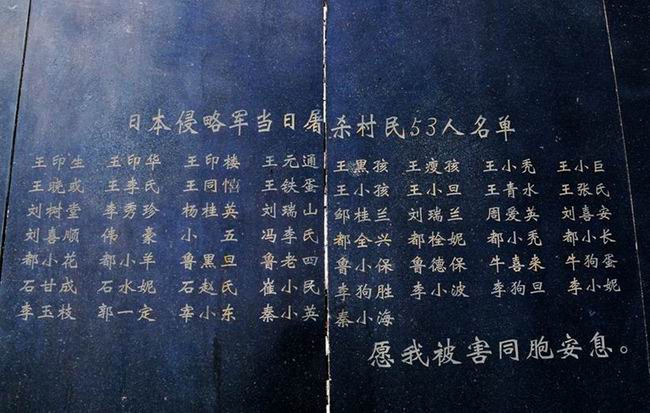 日本侵略军当日屠杀村民53人名单
王印生 王印华 王印楼 王元通 王黑孩 王瘦孩 王小秃 王小巨
王晓成 王李氏 王同恼 王铁蛋 王小孩 王小旦 王青水 王张氏
刘树堂 李秀珍 杨桂英 刘瑞山 邹桂兰 刘瑞兰 周爱英 刘喜安
刘喜顺 伟豪 小五 冯李氏 都全兴 都栓妮 都小秃 都小长
都小花 都小羊 鲁黑旦 鲁老四 鲁小保 鲁德保 牛喜来 牛狗蛋
石甘成 石水妮 石赵氏 崔小民 李狗胜 李小波 李狗旦 李小妮
李玉枝 郭一定 宰小东 秦小英 秦小海
愿我被害同胞安息。